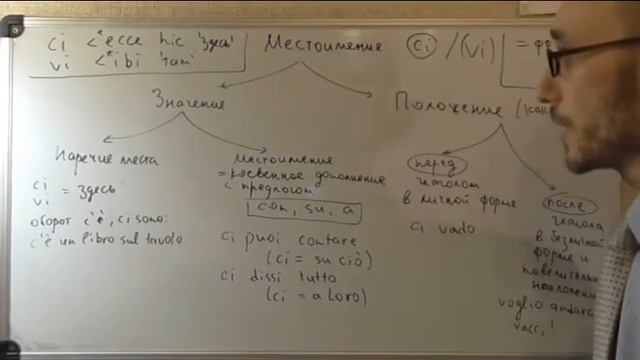 ci <*ecce hic 'здесь'
vi <*ibi 'там'
Местоимение
ci /(vi)
Значение
Положение
Наречие места
ci
vi = здесь
оборот c'è, ci sono:
c'è un libro sul tavolo
местоимение
= косвенное дополнение
с предлогом
con, su, a
ci puoi contare
(ci = su ciò)
ci dissi tutto
(ci = a loro)
перед
глаголом
в личной форме
ci vado
после
глагола
в безличной
форме и
повелительн
наклонени
voglio andarc
vacci!